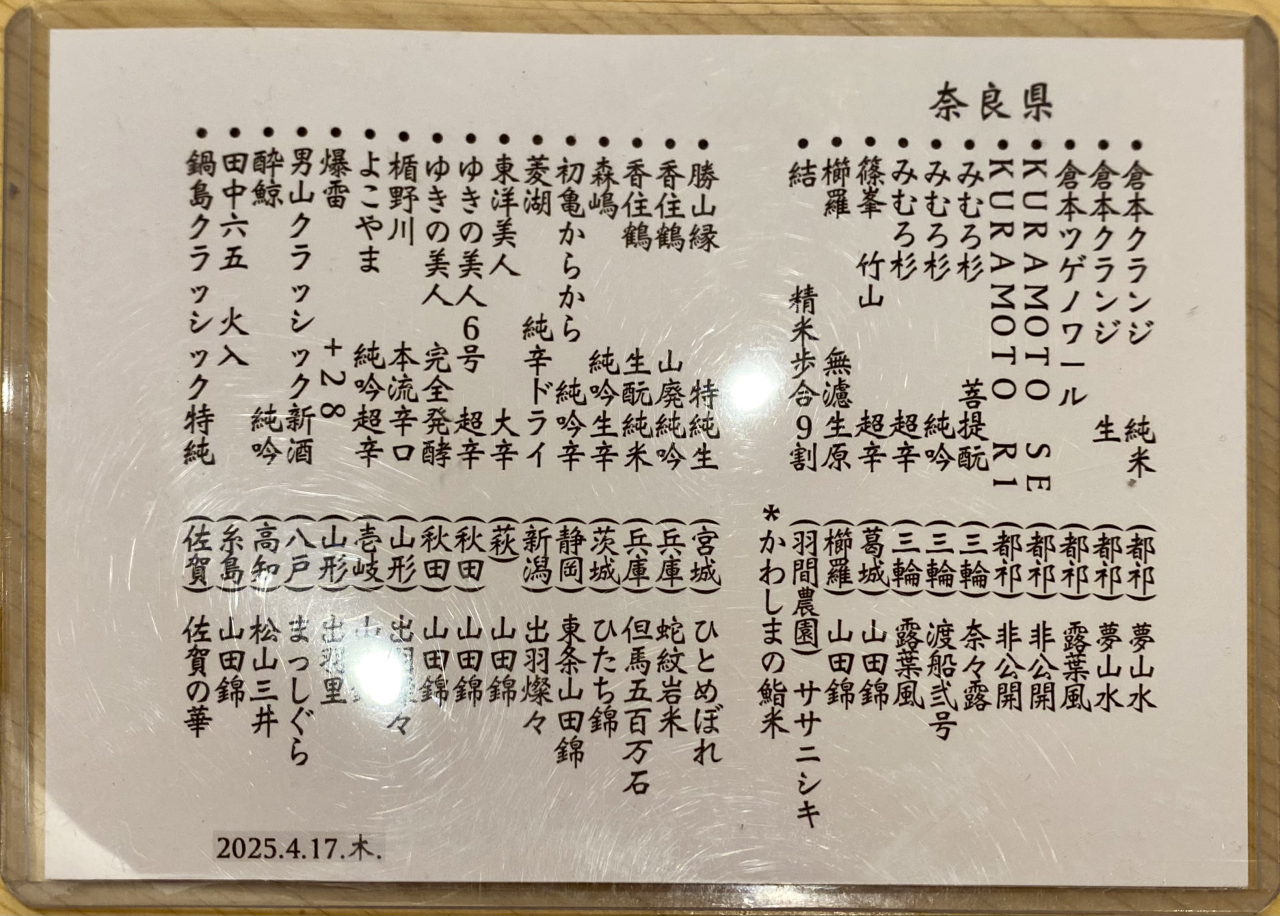 奈良県
・倉本クランジ 純米 (都祁) 夢山水
・倉本クランジ 生 (都祁) 夢山水
・倉本ツゲノワール (都祁) 露葉風
・KURAMOTO SE (都祁) 非公開
・KURAMOTO R1 (都祁) 非公開
・みむろ杉 菩提酛 (三輪) 奈々露
・みむろ杉 純吟 (三輪) 渡船弐号
・みむろ杉 超辛 (三輪) 露葉風
・篠峯 竹山 超辛 (葛城) 山田錦
・櫛羅 無濾生原 (櫛羅) 山田錦
・結 精米歩合9割 (羽間農園) ササニシキ
*かわしまの鮨米
・勝山縁 特純生 (宮城) ひとめぼれ
・香住鶴 山廃純吟 (兵庫) 蛇紋岩米
・香住鶴 生酛純米 (兵庫) 但馬五百万石
・森嶋 純吟生辛 (茨城) ひたち錦
・初亀からから 純吟辛 (静岡) 東条山田錦
・菱湖 純辛ドライ (新潟) 出羽燦々
・東洋美人 大辛 (萩) 山田錦
・ゆきの美人6号 超辛 (秋田) 山田錦
・ゆきの美人 完全発酵 (秋田) 山田錦
・楯野川 本流辛口 (山形) 出羽燦々
・よこやま 純吟超辛 (壱岐) 山田錦
・爆雷 +28 (山形) 出羽里
・男山クラッシック新酒 (八戸) まっしぐら
・酔鯨 純吟 (高知) 松山三井
・田中六五 火入 (糸島) 山田錦
・鍋島クラッシック特純 (佐賀) 佐賀の華
2025.4.17.木.